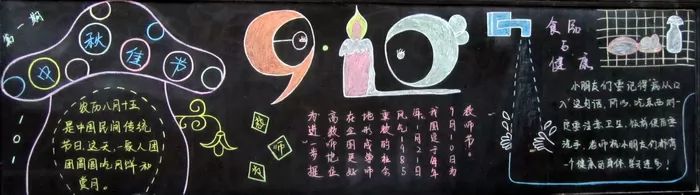 第一期
101
中秋佳节
农历八月十五
是中国民间传统
节日,这天,一家人团
团圆圆吃月饼和
赏月。
9.10
教师节
教师节。
9月10日为
我国
1985
年1月21日
重教的社会
地形成尊师
在全国更好
高教师地位
为进一步提
食品
与
健康
小朋友们要记得病从口
入这句话,所以,吃东西时一
定要注意卫生,饭前便后要
洗手,老师祝小朋友们都有
一个健康的身体,学习进步!